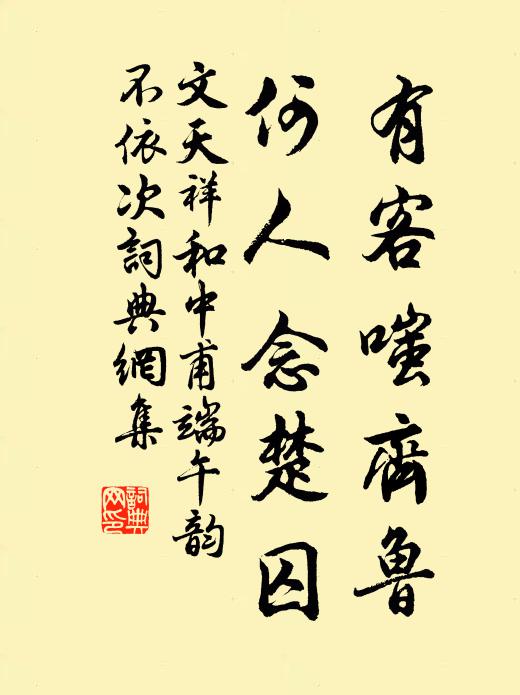 有客嗤齊魯
何人念楚囚
文天祥和中甫端午韵
不依次詞典網集
詞典
网印